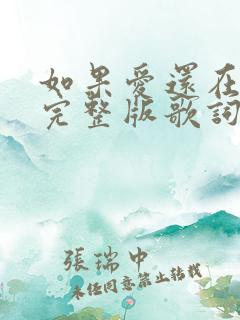 如果愛還在
完整版歌詞
張瑞中
未經同意禁止轉載